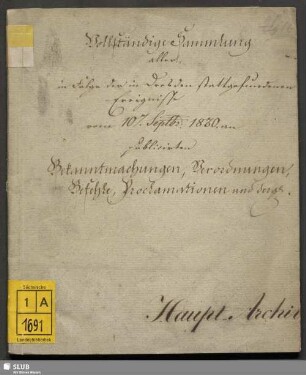 Vollständige Sammlung
aller,
in Folge der in Dresden stattgefundenen
Ereignisse
vom 10t. Septbr. 1830. an
publicirten
Bekanntmachungen, Verordnungen,
Befehle, Proclamationen und dergl.
Haupt-Archiv
Sächsische
1 A
1691
Landesbibliothek
SLUB
Wir führen Wissen.